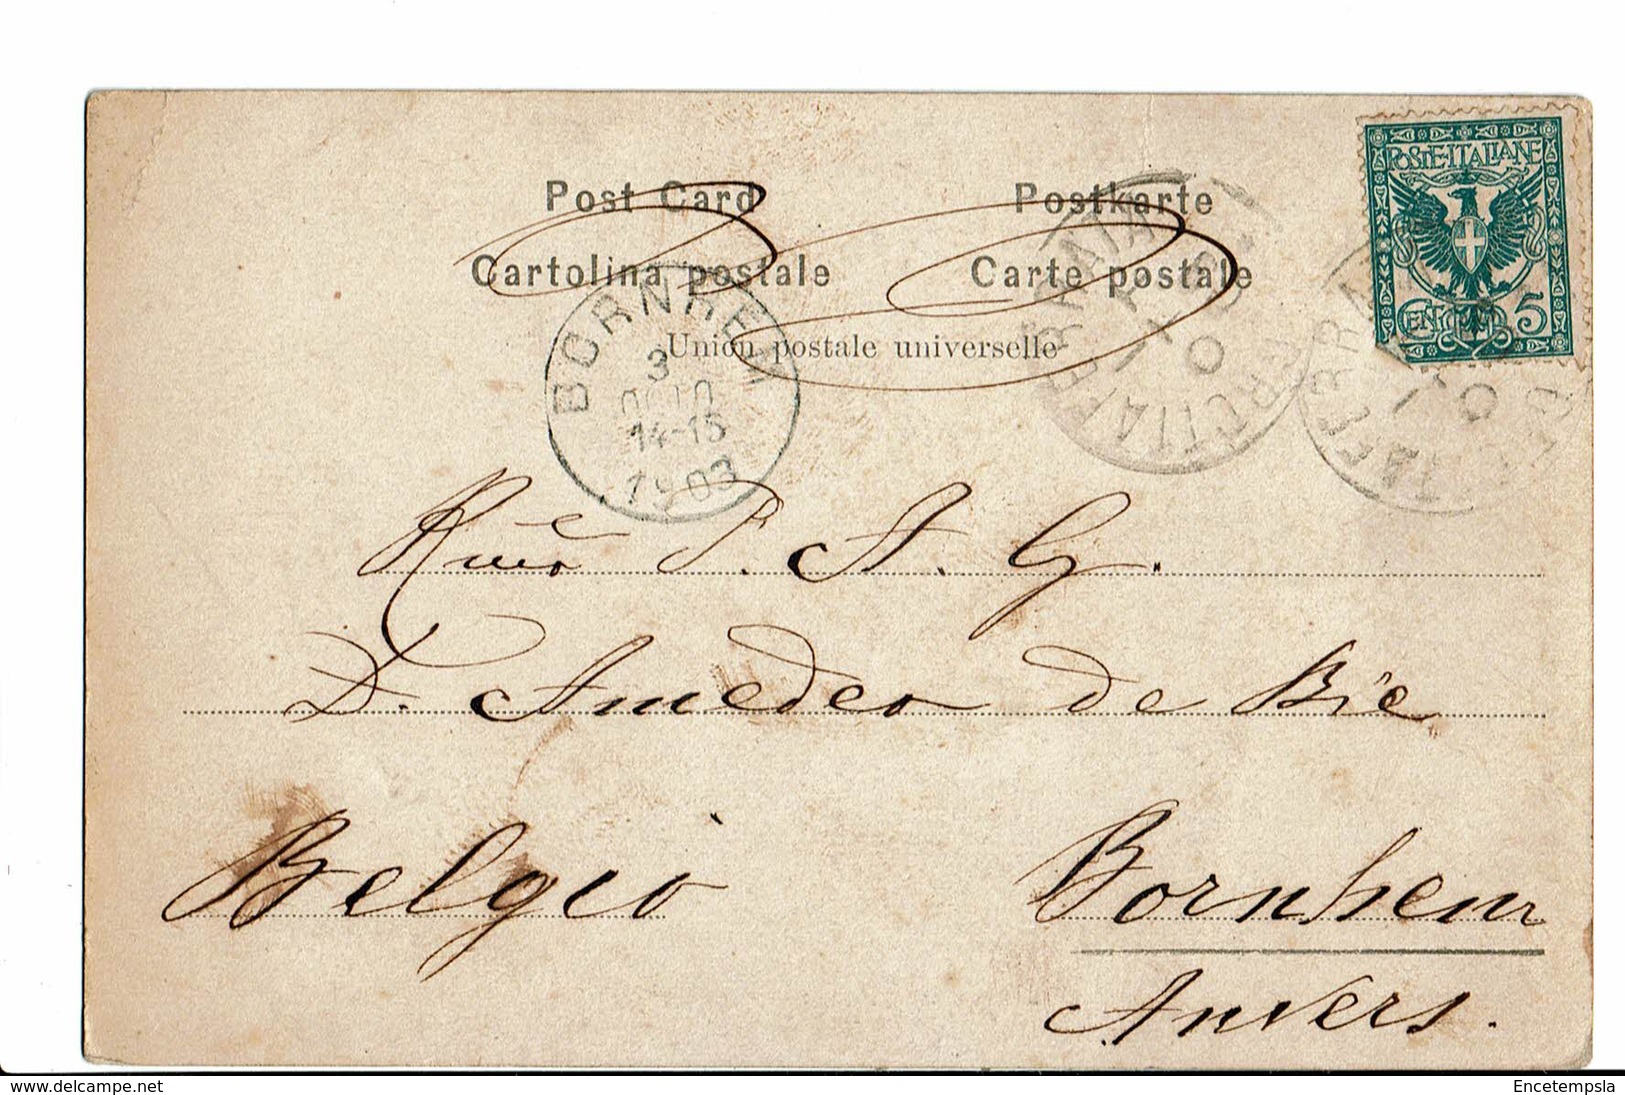 Post Card
Postkarte
POSTE·ITALIANE
Cartolina postale
Carte postale
CENT 5
Union postale universelle
BORNHEM
3
14-15
1903
P. A. G.
D. Amedeo de Bie
Belgio
Bornhem
Anvers.
www.delcampe.net
Encetempsla